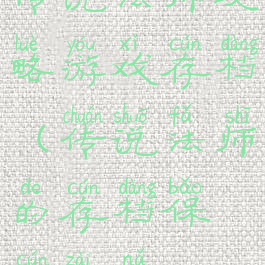 lüè yóu xì cún dàng
略游戏存档
chuán shuō fǎ shī
（传说法师
de cún dàng bǎo
的存档保
cún zài nǎ